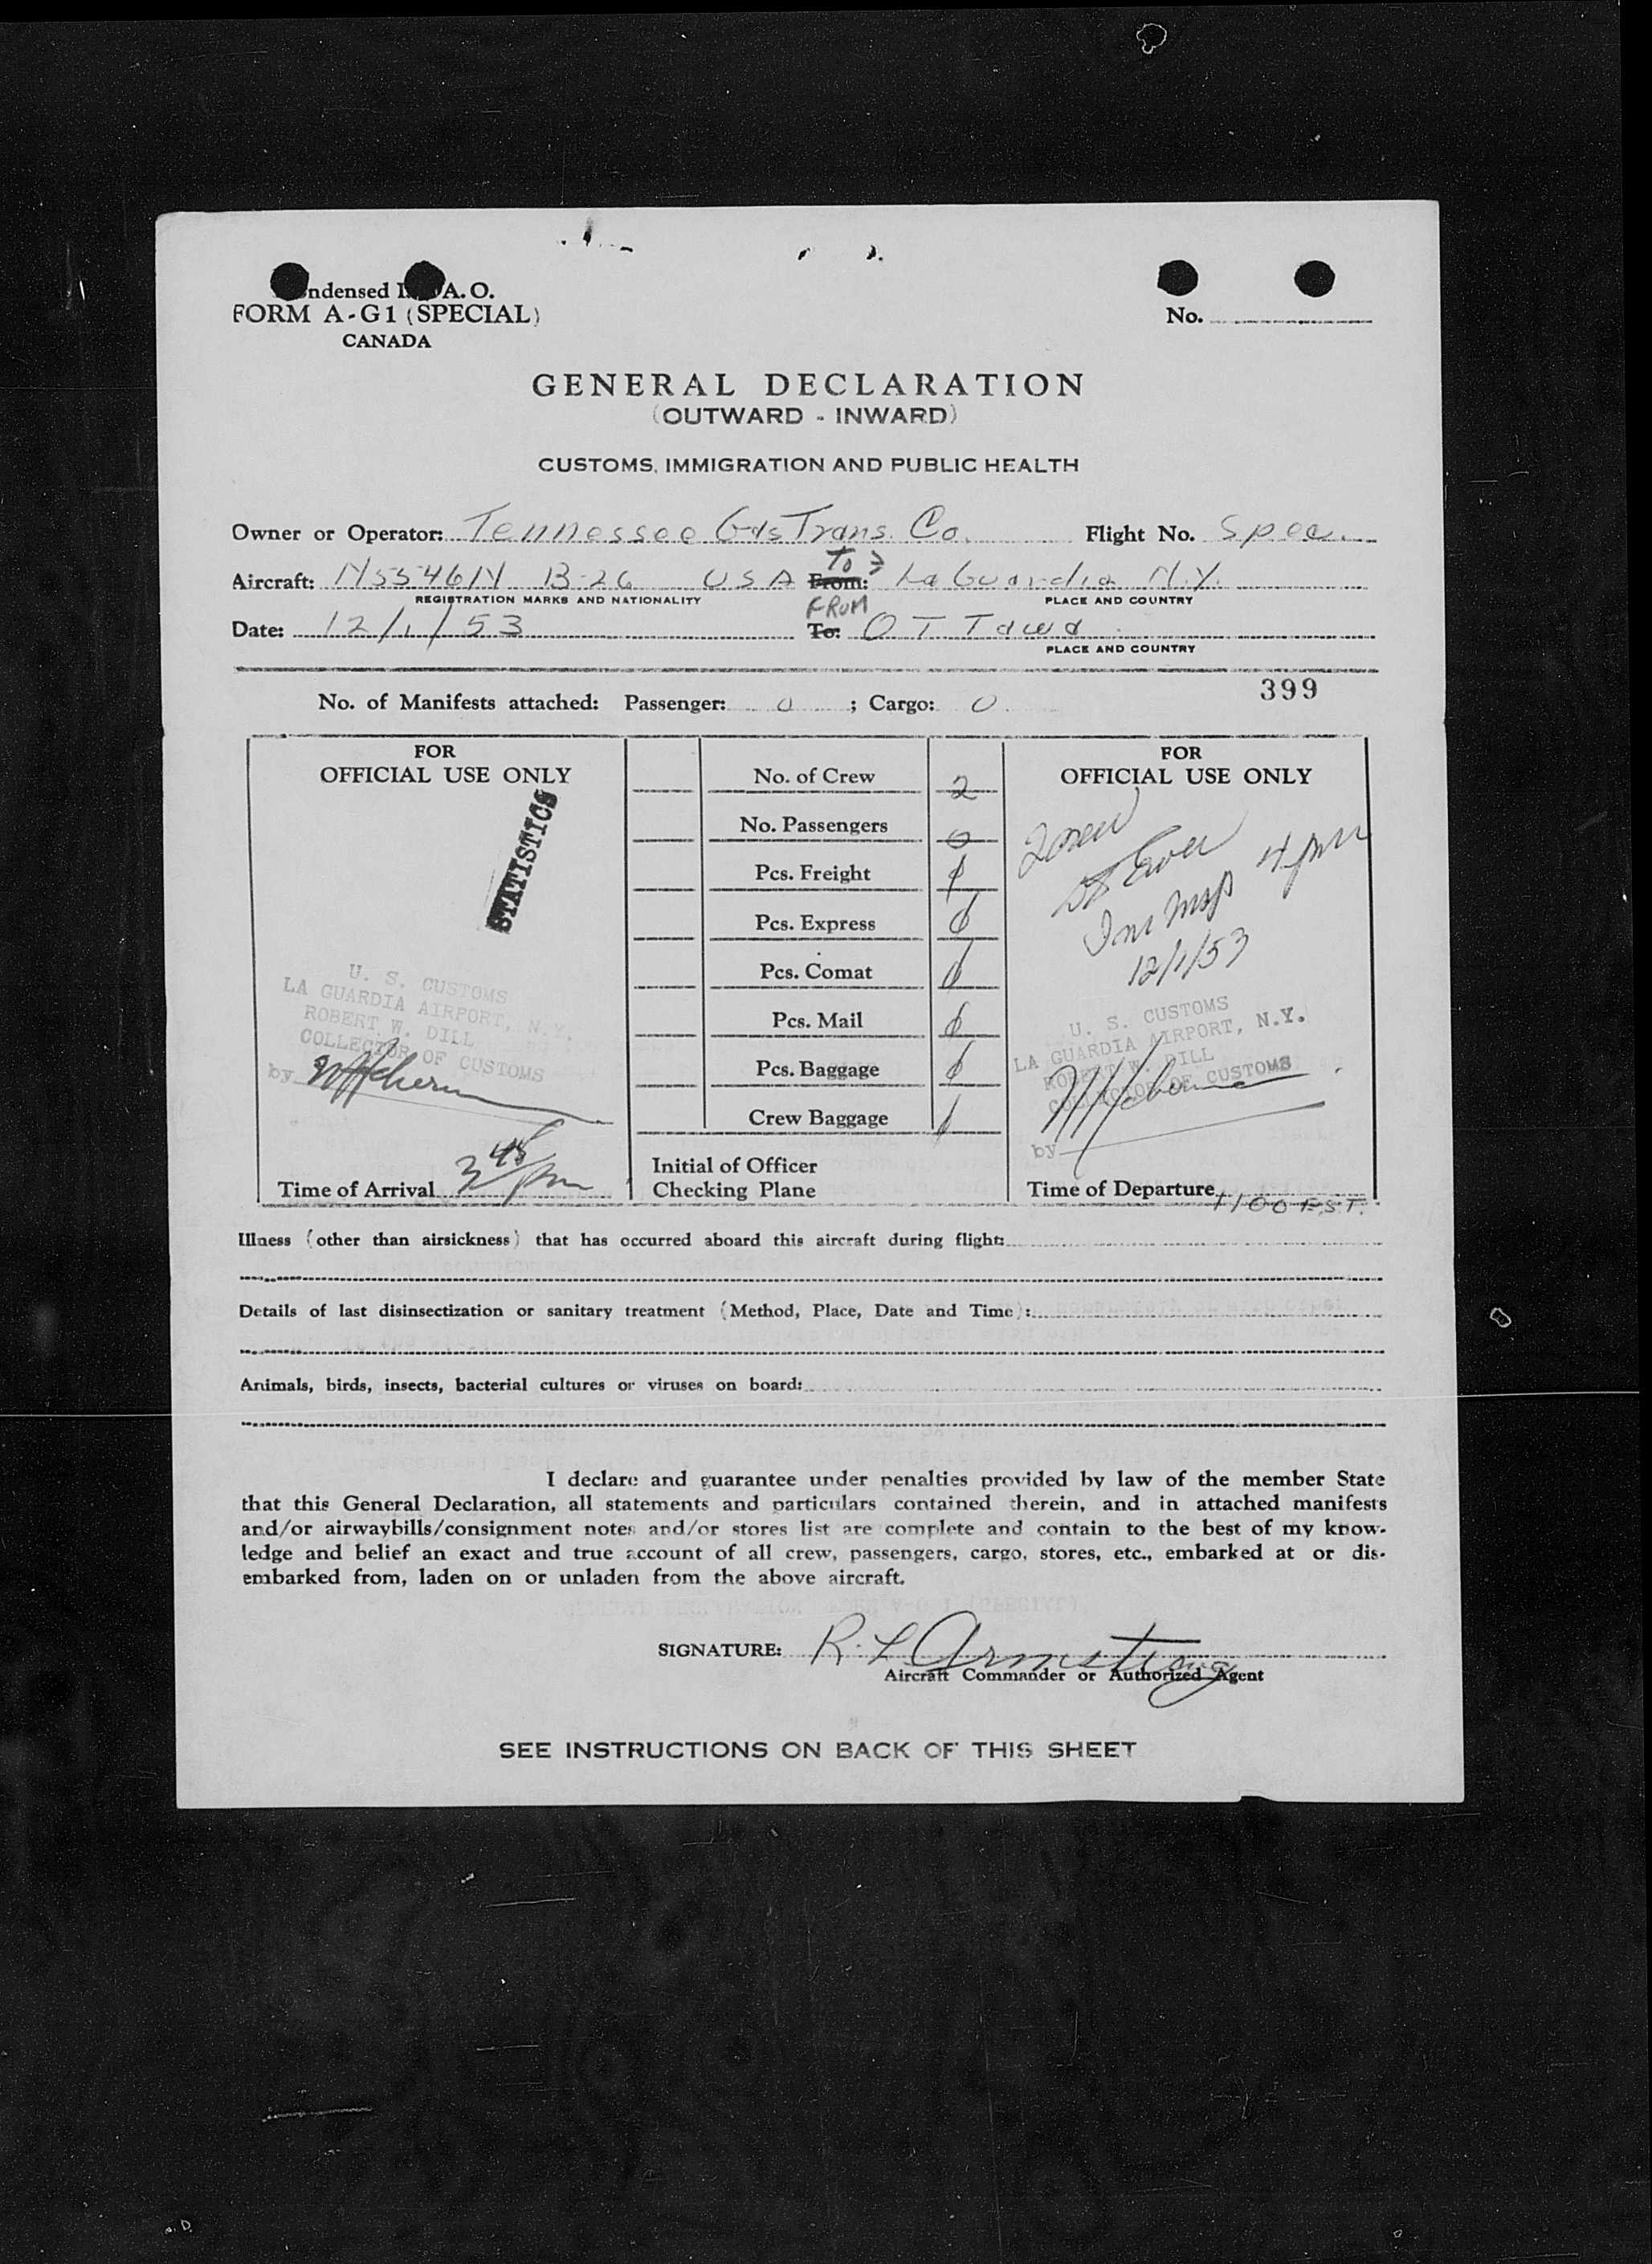 ndensed I. A. O.
FORM A-G1 (SPECIAL)
CANADA
No.
GENERAL DECLARATION
(OUTWARD - INWARD)
CUSTOMS, IMMIGRATION AND PUBLIC HEALTH
Owner or Operator: Tennessee Gas Trans. Co. Flight No. Spec.
TO
Aircraft: N5546N B-26 USA From: La Guardia N.Y.
REGISTRATION MARKS AND NATIONALITY PLACE AND COUNTRY
FROM
Date: 12/1/53 To: OTTawa
PLACE AND COUNTRY
399
No. of Manifests attached: Passenger: 0 ; Cargo: 0
FOR
OFFICIAL USE ONLY
STATISTICS
U. S. CUSTOMS
LA GUARDIA AIRPORT, N.Y.
ROBERT W. DILL
COLLECTOR OF CUSTOMS
by
Time of Arrival 3 48 pm
No. of Crew 2
No. Passengers 0
Pcs. Freight 0
Pcs. Express 0
Pcs. Comat 0
Pcs. Mail 0
Pcs. Baggage 0
Crew Baggage
Initial of Officer
Checking Plane
FOR
OFFICIAL USE ONLY
2 crew
4 pm
12/1/53
U. S. CUSTOMS
LA GUARDIA AIRPORT, N.Y.
ROBERT W. DILL
COLLECTOR OF CUSTOMS
by
Time of Departure 1100 E.S.T.
Illness (other than airsickness) that has occurred aboard this aircraft during flight:
Details of last disinsectization or sanitary treatment (Method, Place, Date and Time):
Animals, birds, insects, bacterial cultures or viruses on board:
I declare and guarantee under penalties provided by law of the member State
that this General Declaration, all statements and particulars contained therein, and in attached manifests
and/or airwaybills/consignment notes and/or stores list are complete and contain to the best of my know-
ledge and belief an exact and true account of all crew, passengers, cargo, stores, etc., embarked at or dis-
embarked from, laden on or unladen from the above aircraft.
SIGNATURE: R. L Armstrong
Aircraft Commander or Authorized Agent
SEE INSTRUCTIONS ON BACK OF THIS SHEET